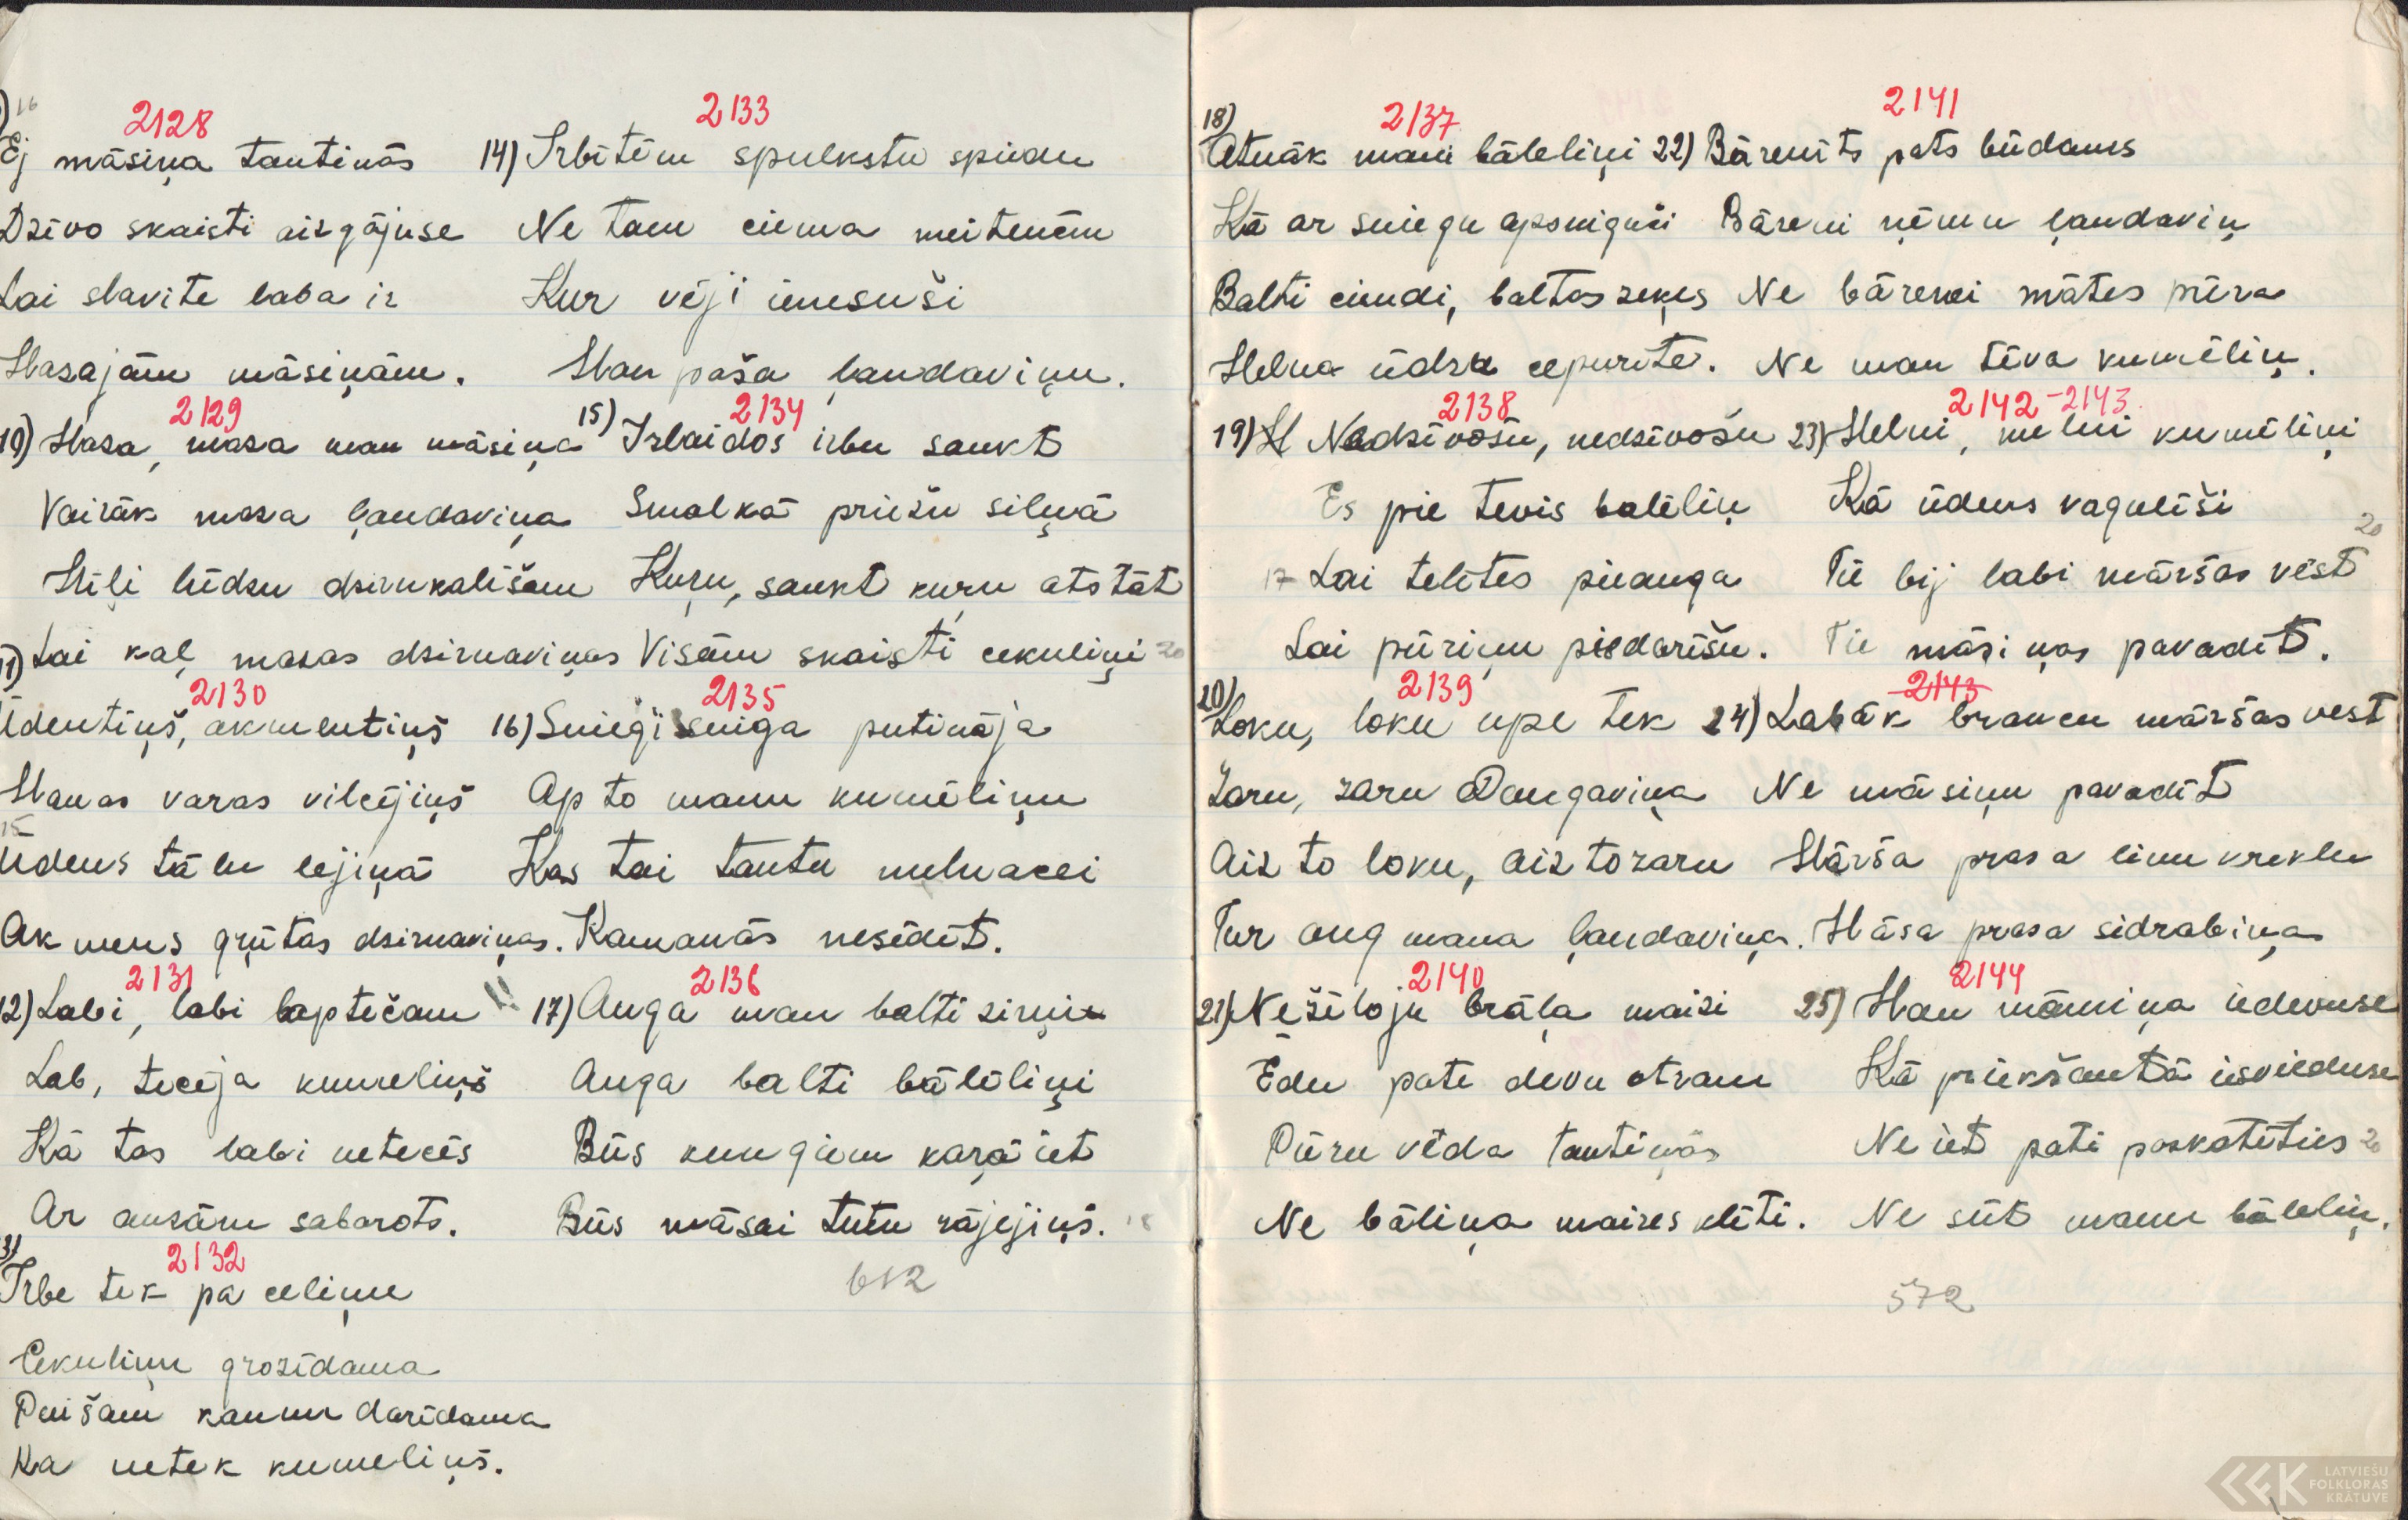 16
2128
Ej māsiņa tautinās
Dzīvo skaisti aizgājuse
Lai slavite laba ir
Mazajām māsiņām.
10) 2129
Maza, maza man māsiņa
Vairāk maza ļaudaviņa
Mīļi lūdzu dzirnkalīšam
Lai kaļ mazas dzirnaviņas
11) 2130
Ūdentiņš, akmentiņš
Manas varas vilcējiņš
15
Ūdens tālu lejiņā
Akmens grūtas dzirnaviņas.
2131
12) Labi, labi lapstečam
Lab, teceja kumeliņš
Kā tas labi netecēs
Ar auzām sabarots.
13) 2132
Irbe tek pa celiņu
Cekuliņu grozīdama
Puišam kaunu darīdama
Ka netek kumeliņš.
2133
14) Irbītēm spulkstu spiedu
Ne tam ciema meitenēm
Kur vēji ienesuši
Man paša ļaudaviņu.
15) 2134
Izlaidos irbu saukt
Smalkā priežu siliņā
Kuŗu, saukt kuŗu atstāt
Visām skaisti cekuliņi 20
2135
16) Sniegi sniga putināja
Ap to manu kumēliņu
Kas tai tautu melnacei
Kamanās nesēdēt.
2136
17) Auga man balti zirņi
Auga balti bālēliņi
Būs kungiem karā iet
Būs māsai tutu rājējiņš. 18
612
18) 2137
Atnāk mani bāleliņi
Kā ar sniegu apsniguši
Balti cimdi, baltas zeķes
Melna ūdru cepurīte.
2138
19) Nedzīvošu, nedzīvošu
Es pie tevis balēliņ
17 Lai telītes pieauga
Lai pūriņu piedarīšu.
20) 2139
Loku, loku upe tek
Zaru, zaru Daugaviņa
Aiz to loku, aiz to zaru
Tur aug mana ļaudaviņa.
2140
21) Nežēloju brāļa maizi
Ēdu pate devu otram
Pūru vēda tautiņās
Ne bāliņa maizes klēti.
2141
22) Bārenīts pats būdams
Bāreni ņēmu ļaudaviņ
Ne bārenei mātes pūra
Ne man tēva kumēliņ.
2142-2143
23) Melni, melni kumēliņi
Kā ūdens vagulīši
20
Tie bij labi māršas vēst
Tie māsiņas pavadīt.
2143
24) Labāk braucu māršas vest
Ne māsiņu pavadīt
Mārša prasa linu kreklu
Māsa prasa sidrabiņa
2144
25) Man māmiņa iedevuse
Kā priekšautā iesvieduse
Ne iet pati paskatīties 20
Ne sūt manu bāleliņ.
572
LATVIEŠU
FOLKLORAS
KRĀTUVE